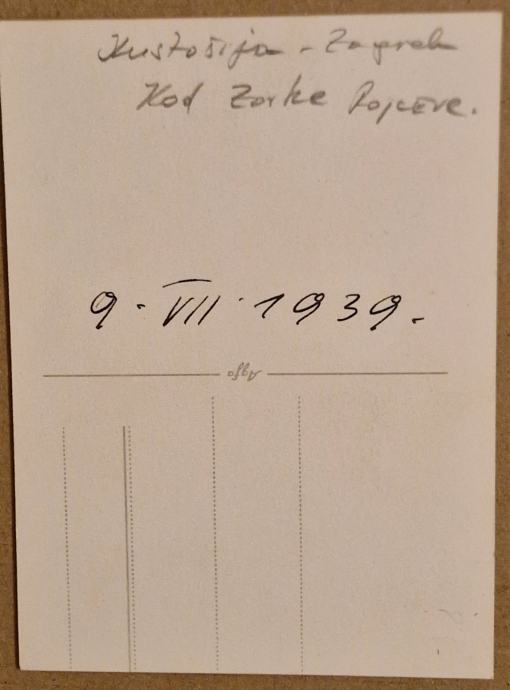 Kustošija - Zagreb
Kod Zorke Pojceve.
9. VII 1939.
Agfa